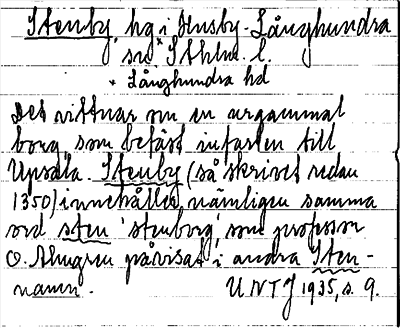 Stenby, hg i Husby-Långhundra
sn* Sthlm. l.
* Långhundra hd
Det vittnar om en urgammal
borg som befäst infarten till
Upsala. Stenby (så skrivet redan
1350) innehåller nämligen samma
ord sten 'stenborg', som professor
O. Almgren påvisat i andra Sten-
namn. UNTJ 1935, s. 9.